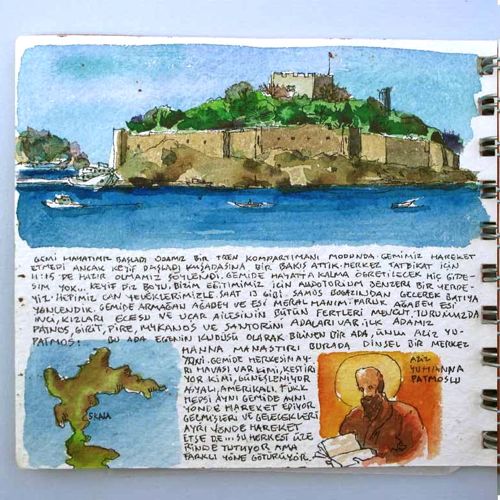 GEMİ HAYATIMIZ BAŞLADI ODAMIZ BİR TREN KOMPARTIMANI MODUNDA. GEMİMİZ HAREKET
ETMEDİ ANCAK KEYİF BAŞLADI KUŞADASINA BİR BAKIŞ ATTIK. MERKEZ TATBİKAT İÇİN
11:45'DE HAZIR OLMAMIZ SÖYLENDİ. GEMİDE HAYATTA KALMA ÖĞRETİLECEK HİÇ GİDE-
SİM YOK... KEYİF DİZ BOYU, BİZİM EĞİTİMİMİZ İÇİN AUDİTORİUM BENZERİ BİR YERDE-
YİZ. HEPİMİZ CAN YELEKLERİMİZLE. SAAT 13 GİBİ. SAMOS BOĞAZINDAN GEÇEREK BATIYA
YÖNLENDİK. GEMİDE ARMAĞAN AĞABEY VE EŞİ MERAL HANIM. FARUK AĞABEY EŞİ
İNCİ, KIZLARI ECESU VE UÇAR AİLESİNİN BÜTÜN FERTLERİ MEVCUT. TURUMUZDA
PATMOS, GİRİT, PİRE, MYKANOS VE SANTORİNİ ADALARI VAR. İLK ADAMIZ
PATMOS! BU ADA EGENİN KUDÜSÜ OLARAK BİLİNEN BİR ADA, ÜNLÜ AZİZ YU-
HANNA MANASTIRI BURADA DİNSEL BİR MERKEZ
YANİ. GEMİDE HERKESİN AY-
RI HAVASI VAR KİMİ, KESTİRİ
YOR KİMİ, GÜNEŞLENİYOR
ASYALI, AMERİKALI, TÜRK
HEPSİ AYNI GEMİDE AYNI
YÖNDE HAREKET EDİYOR
GEÇMİŞLERİ VE GELECEKLERİ
AYRI YÖNDE HAREKET
ETSE DE... SU HERKESİ ÜZE
RİNDE TUTUYOR AMA
FARKLI YÖNE GÖTÜRÜYOR.
SKALA
AZİZ
YUHANNA
PATMOSLU